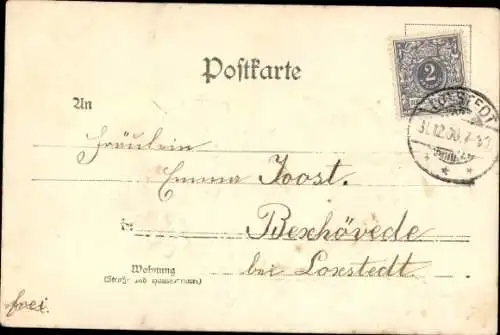 Postkarte
2
LOXSTEDT
31.12.00.
An
Fräulein
Emma Joost.
in
Bexhövede
bei Loxstedt.
Wohnung
(Straße und Hausnummer)
frei.